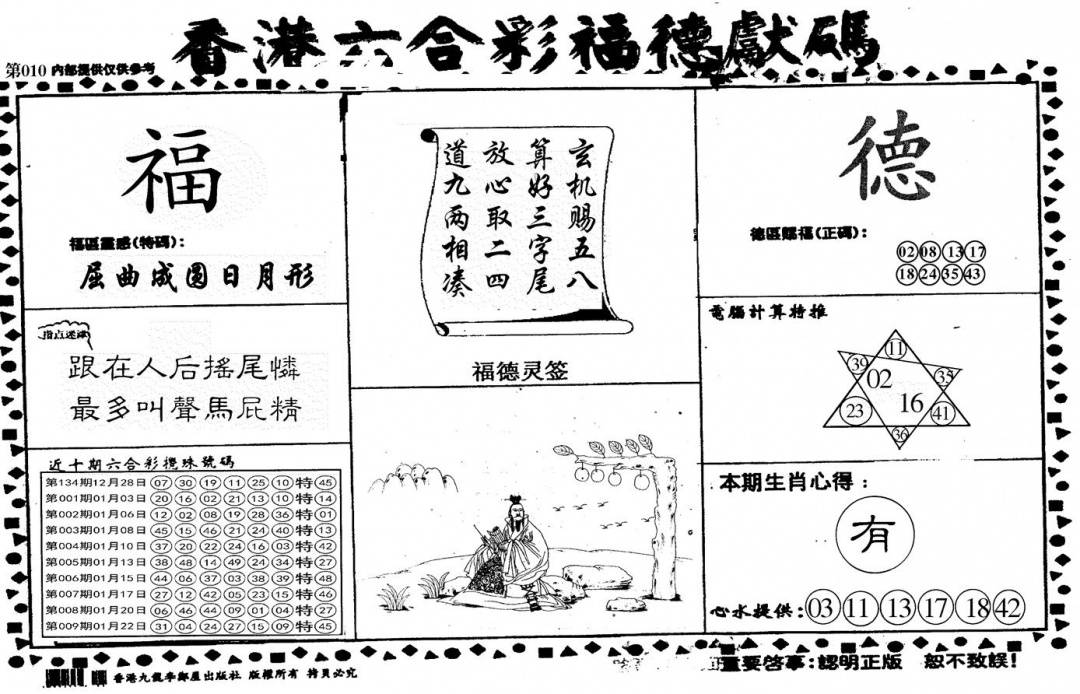 香港六合彩福德獻碼
第010 内部提供仅供参考
福
福區靈感(特碼):
屈曲成圆日月形
指点迷津
跟在人后搖尾憐
最多叫聲馬屁精
近十期六合彩攪珠號碼
第134期12月28日 07 30 19 11 25 10 特 45
第001期01月03日 20 16 02 21 13 10 特 14
第002期01月06日 12 02 08 19 28 36 特 01
第003期01月08日 45 15 46 21 24 40 特 13
第004期01月10日 37 20 22 24 16 03 特 42
第005期01月13日 38 48 14 49 24 34 特 27
第006期01月15日 44 06 37 03 38 39 特 48
第007期01月17日 27 12 42 05 23 15 特 46
第008期01月20日 06 46 44 09 01 04 特 27
第009期01月22日 31 04 24 27 15 09 特 45
玄机赐五八
算好三字尾
放心取二四
道九两相凑
福德灵签
德
德區賜福(正碼):
02 08 13 17
18 24 35 43
電腦計算特推
11
39 02 35
23 16 41
36
本期生肖心得:
有
心水提供:03 11 13 17 18 42
香港九龍李鄭屋出版社 版權所有 拷貝必究
重要啓事:認明正版 恕不致誤!